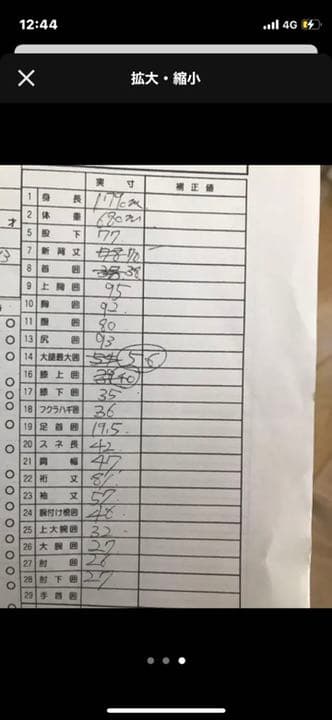 12:44
4G
拡大・縮小
実 寸 補正値
1 身長 179cm
2 体重
5 股下 77
7 新背丈
8 首囲 38
9 上胸囲 95
10 胸囲 92
11 腹囲 80
13 尻囲 93
14 大腿最大囲 54 56
16 膝上囲 39 40
17 膝下囲 35
18 フクラハギ囲 36
19 足首囲 19.5
20 スネ長 42
21 肩幅 47
22 裄丈 81
23 袖丈 57
24 腕付け根囲 46
25 上大腕囲 32
26 大腕囲 27
27 肘囲 26
28 肘下囲 27
29 手首囲